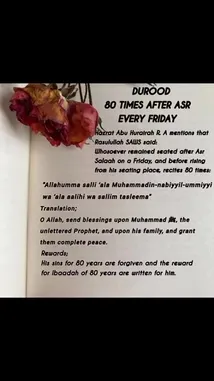 DUROOD
80 TIMES AFTER ASR
EVERY FRIDAY
Hazrat Abu Hurairah R. A mentions that
Rasulullah SAWS said:
Whosoever remained seated after Asr
Salaah on a Friday, and before rising
from his seating place, recites 80 times:
"Allahumma salli 'ala Muhammadin-nabiyyil-ummiyyi
wa 'ala aalihi wa sallim tasleema"
Translation;
O Allah, send blessings upon Muhammad ﷺ, the
unlettered Prophet, and upon his family, and grant
them complete peace.
Rewards;
His sins for 80 years are forgiven and the reward
for Ibaadah of 80 years are written for him.